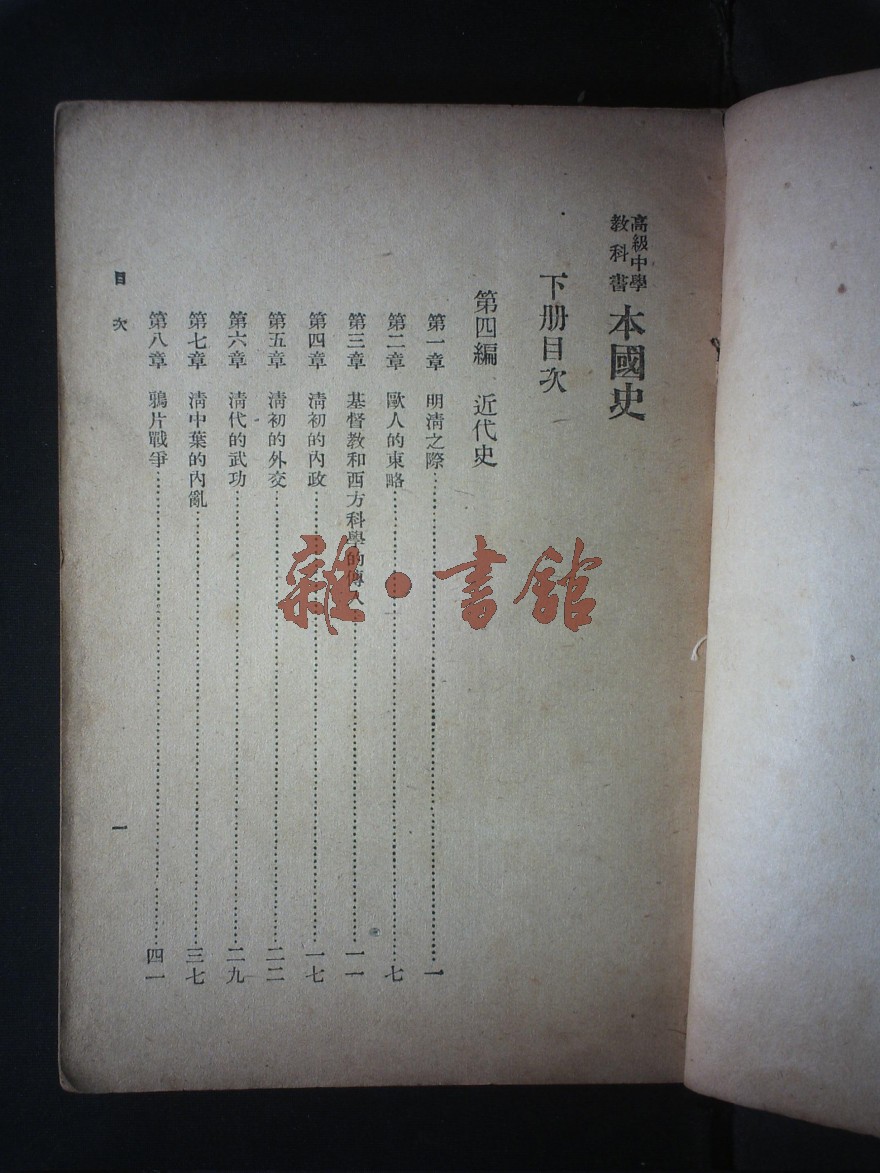 高級中學
教科書
本國史
下册目次
第四編 近代史
第一章 明清之際……一
第二章 歐人的東略……七
第三章 基督教和西方科學的傳入……一一
第四章 清初的內政……一七
第五章 清初的外交……二二
第六章 清代的武功……二九
第七章 清中葉的內亂……三七
第八章 鴉片戰爭……四一
目次
一
雜·書館